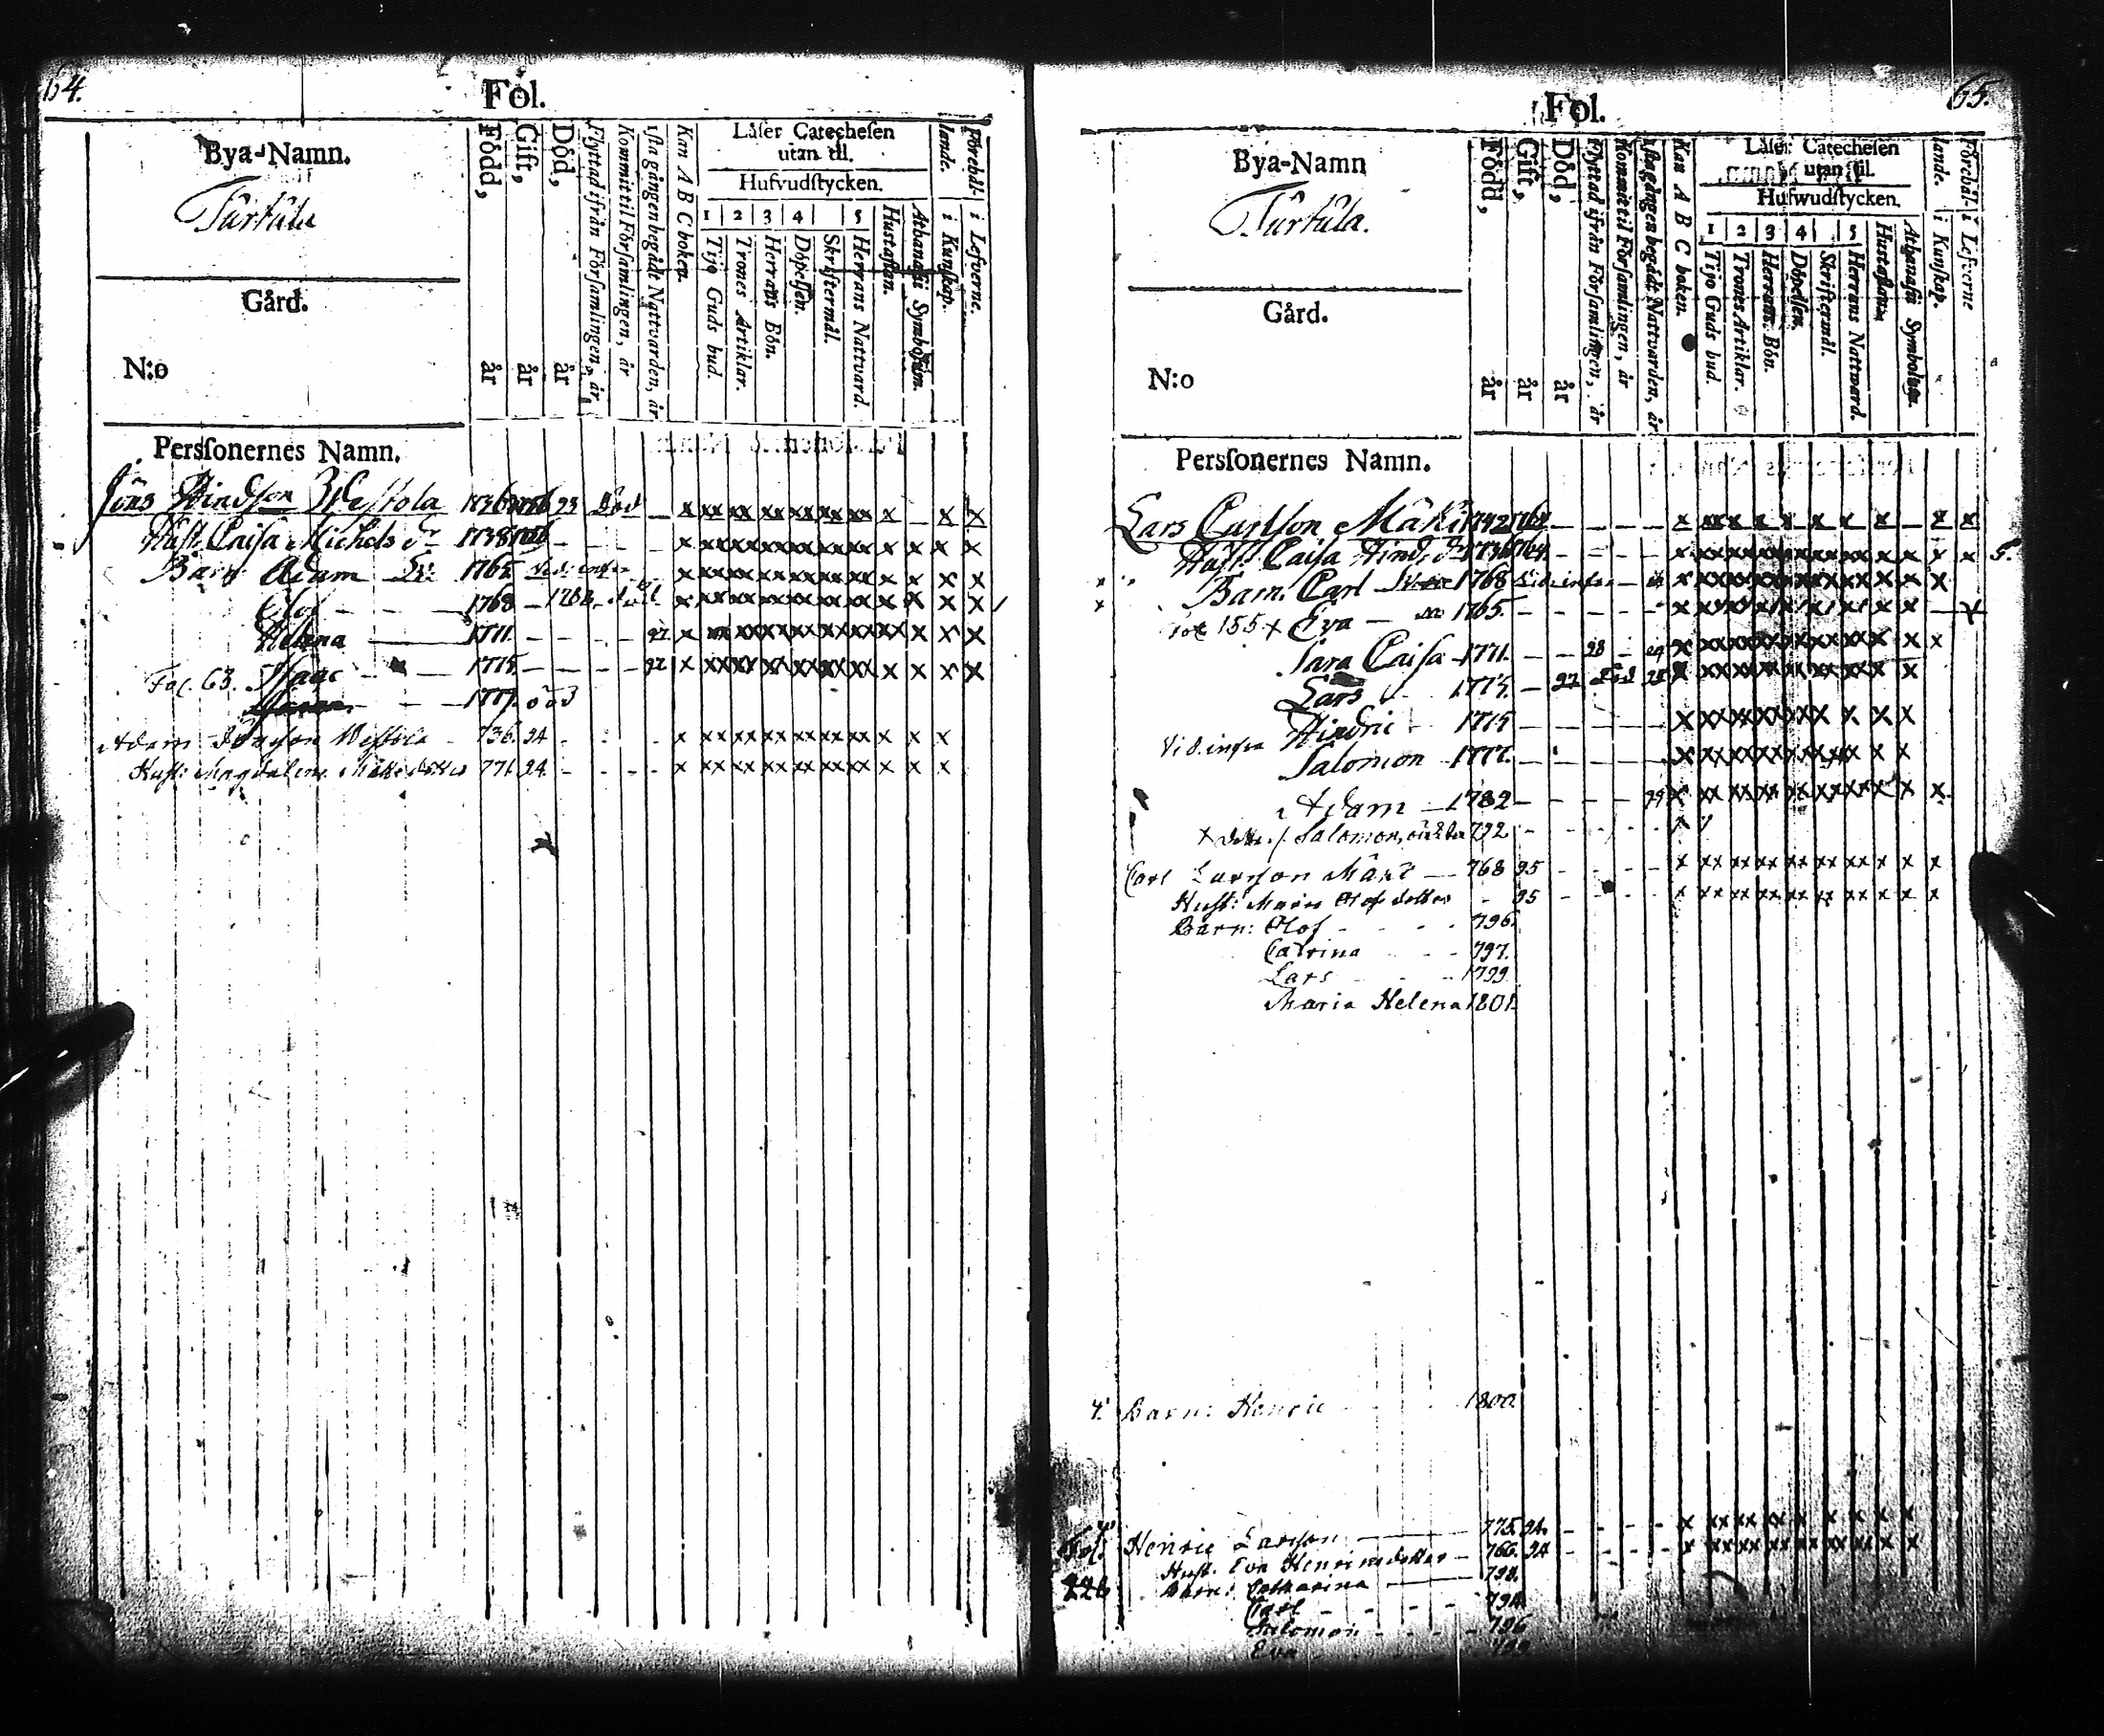 64.
Fol.
Bya-Namn.
Turtula
Gård.
N:o
Född, år
Gift, år
Död, år
Flyttad ifrån Församlingen, år
Kommit til Församlingen, år
ista gången begådt Nattvarden, år
Kan A B C boken.
Läser Catechesen
utan til.
Hufvudstycken.
1 2 3 4 5
Tijo Guds bud.
Trones Artiklar.
Herrans Bön.
Döpelsen.
Skriftermål.
Herrans Nattvard.
Hustaflan.
Athanasii Symbolum.
Förehållande.
i Kunskap.
i Lefverne.
Perssonernes Namn.
Jöns Hindson Westola 1736 1756 93 Död x xx xx xx xx xx xx x x x
Hust. Caisa Michels dr 1738 1756 x xx xx xx xx xx xx x x x x
Barn Adam 1765 Vid. infra x xx xx xx xx xx xx x x x x
Olof 1768 död x xx xx xx xx xx xx x x x x
Helena 1771. 97 x xx xx xx xx xx xx x x x x
Fol. 63. Isaac 1775 92 x xx xx xx xx xx xx x x x x
1777. död
Adam Jönsson Westola 736. 94 x xx xx xx xx xx xx x x x
Hust: Magdalena Matts dotter 771. 94. x xx xx xx xx xx xx x x x
65.
Fol.
Bya-Namn
Turtula.
Gård.
N:o
Född, år
Gift, år
Död, år
Flyttad ifrån Församlingen, år
Kommit til Församlingen, år
ista gången begådt Nattvarden, år
Kan A B C boken.
Läser Catechesen
utan til.
Hufwudstycken.
1 2 3 4 5
Tijo Guds bud.
Trones Artiklar.
Herrans Bön.
Döpelsen.
Skriftermål.
Herrans Nattward.
Hustaflan
Athanasii Symbolum.
Förehållande.
i Kunskap.
i Lefverne
Perssonernes Namn.
Lars Carlson Mäki 1742 1764 x xx x x x x x x x x
Hust. Caisa Hind. dr 1736 1764 x xx xx xx xx xx xx x x x x 5.
Barn. Carl 1768 Vid. infra x xx xx xx xx xx xx x x x
Fol 155 x Eva 1765. x xx xx xx xx xx xx x x
Sara Caisa 1771. 98 x xx xx xx xx xx xx x x x
Lars 1773. 92 Död x xx xx xx xx xx xx x x
Vid. infra Hindric 1775 x xx xx xx xx x x x x
Salomon 1777. x xx xx xx xx xx xx x x
Adam 1782 99 x xx xx xx xx xx xx x x x
Salomon, oäkta 792. x
Carl Larsson Mäki 768 95 x xx xx xx xx xx xx x x x
Hust: Maria Olofs dotter 95 x xx xx xx xx xx xx x x x
Barn: Olof 796.
Catrina 797.
Lars 1799
Maria Helena 1801.
Barn: Henric 1800.
Fol. 226 Henric Larsson 775. 94. x xx xx xx x x x x x
Hust. Eva Henricsdotter 766. 94 x xx xx xx xx xx xx x x
Barn: Catharina
Carl 794.
Salomon 796
Eva